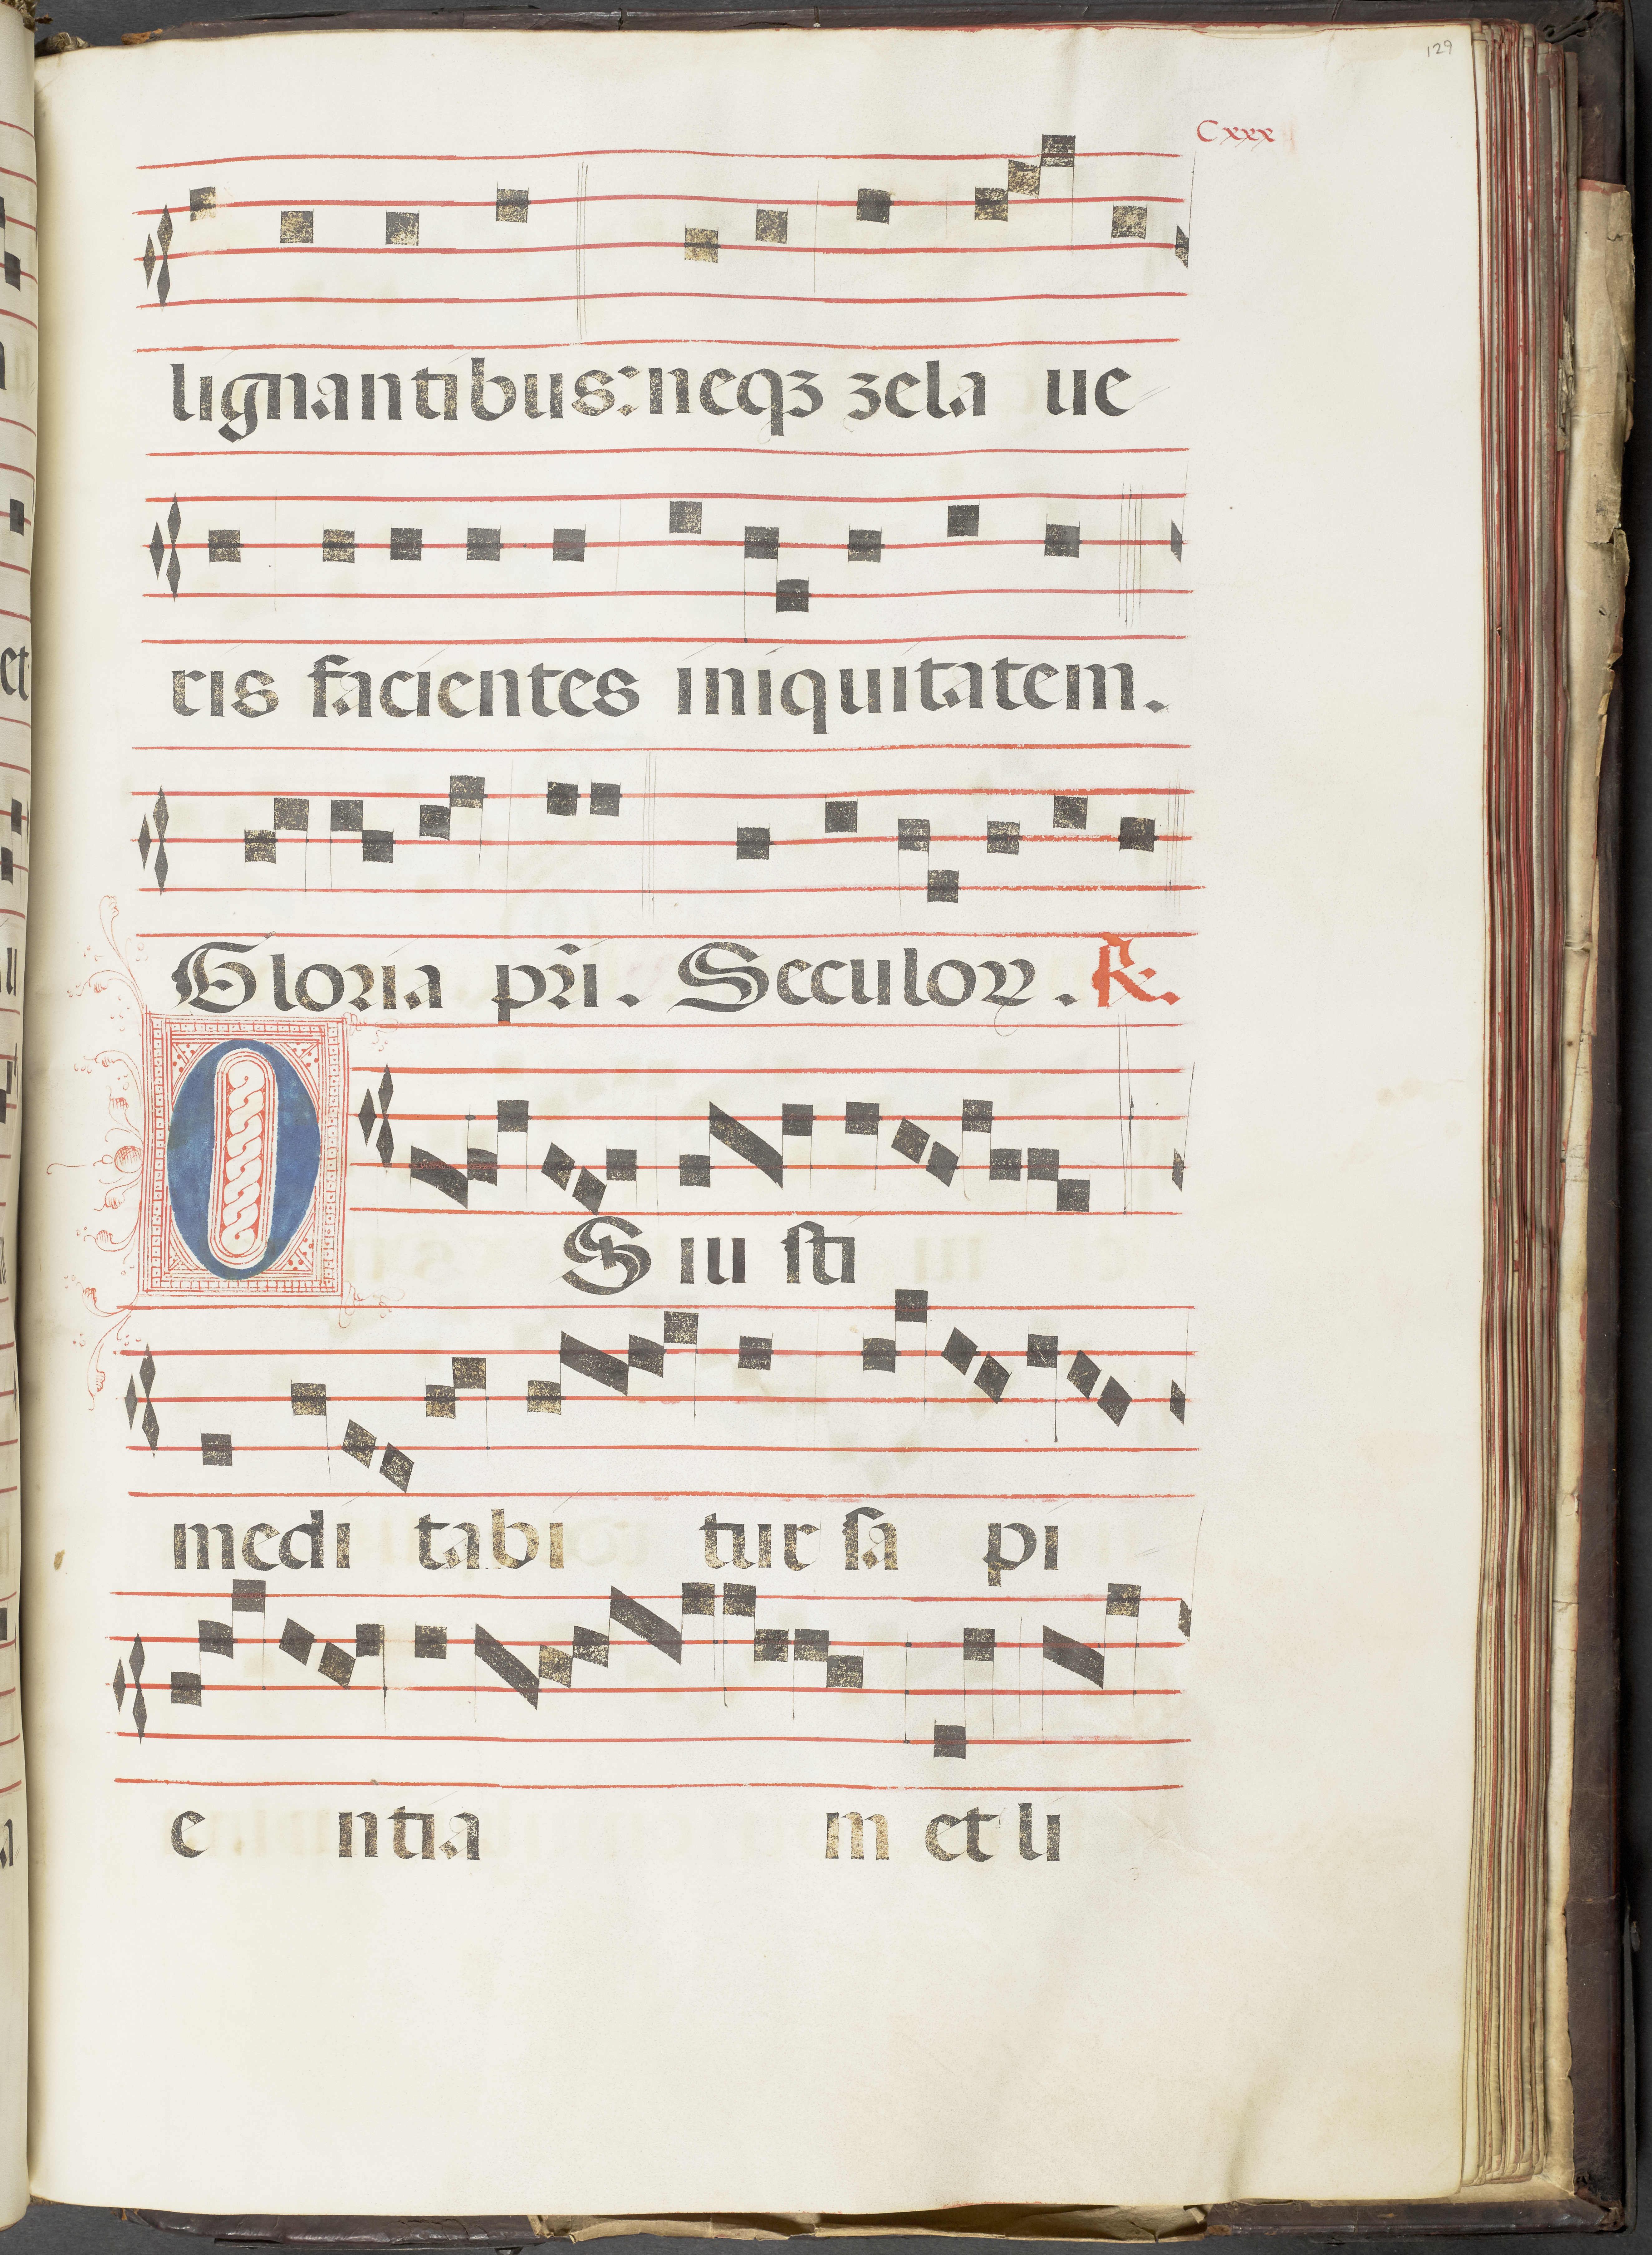 129
Cxxx
lignantibus: neqʒ zela ue
ris facientes iniquitatem.
Gloria pr̄i. Seculoꝝ. ℟.
OS iu sti
medi tabi tur sa pi
e ntia m et li
et
u
a